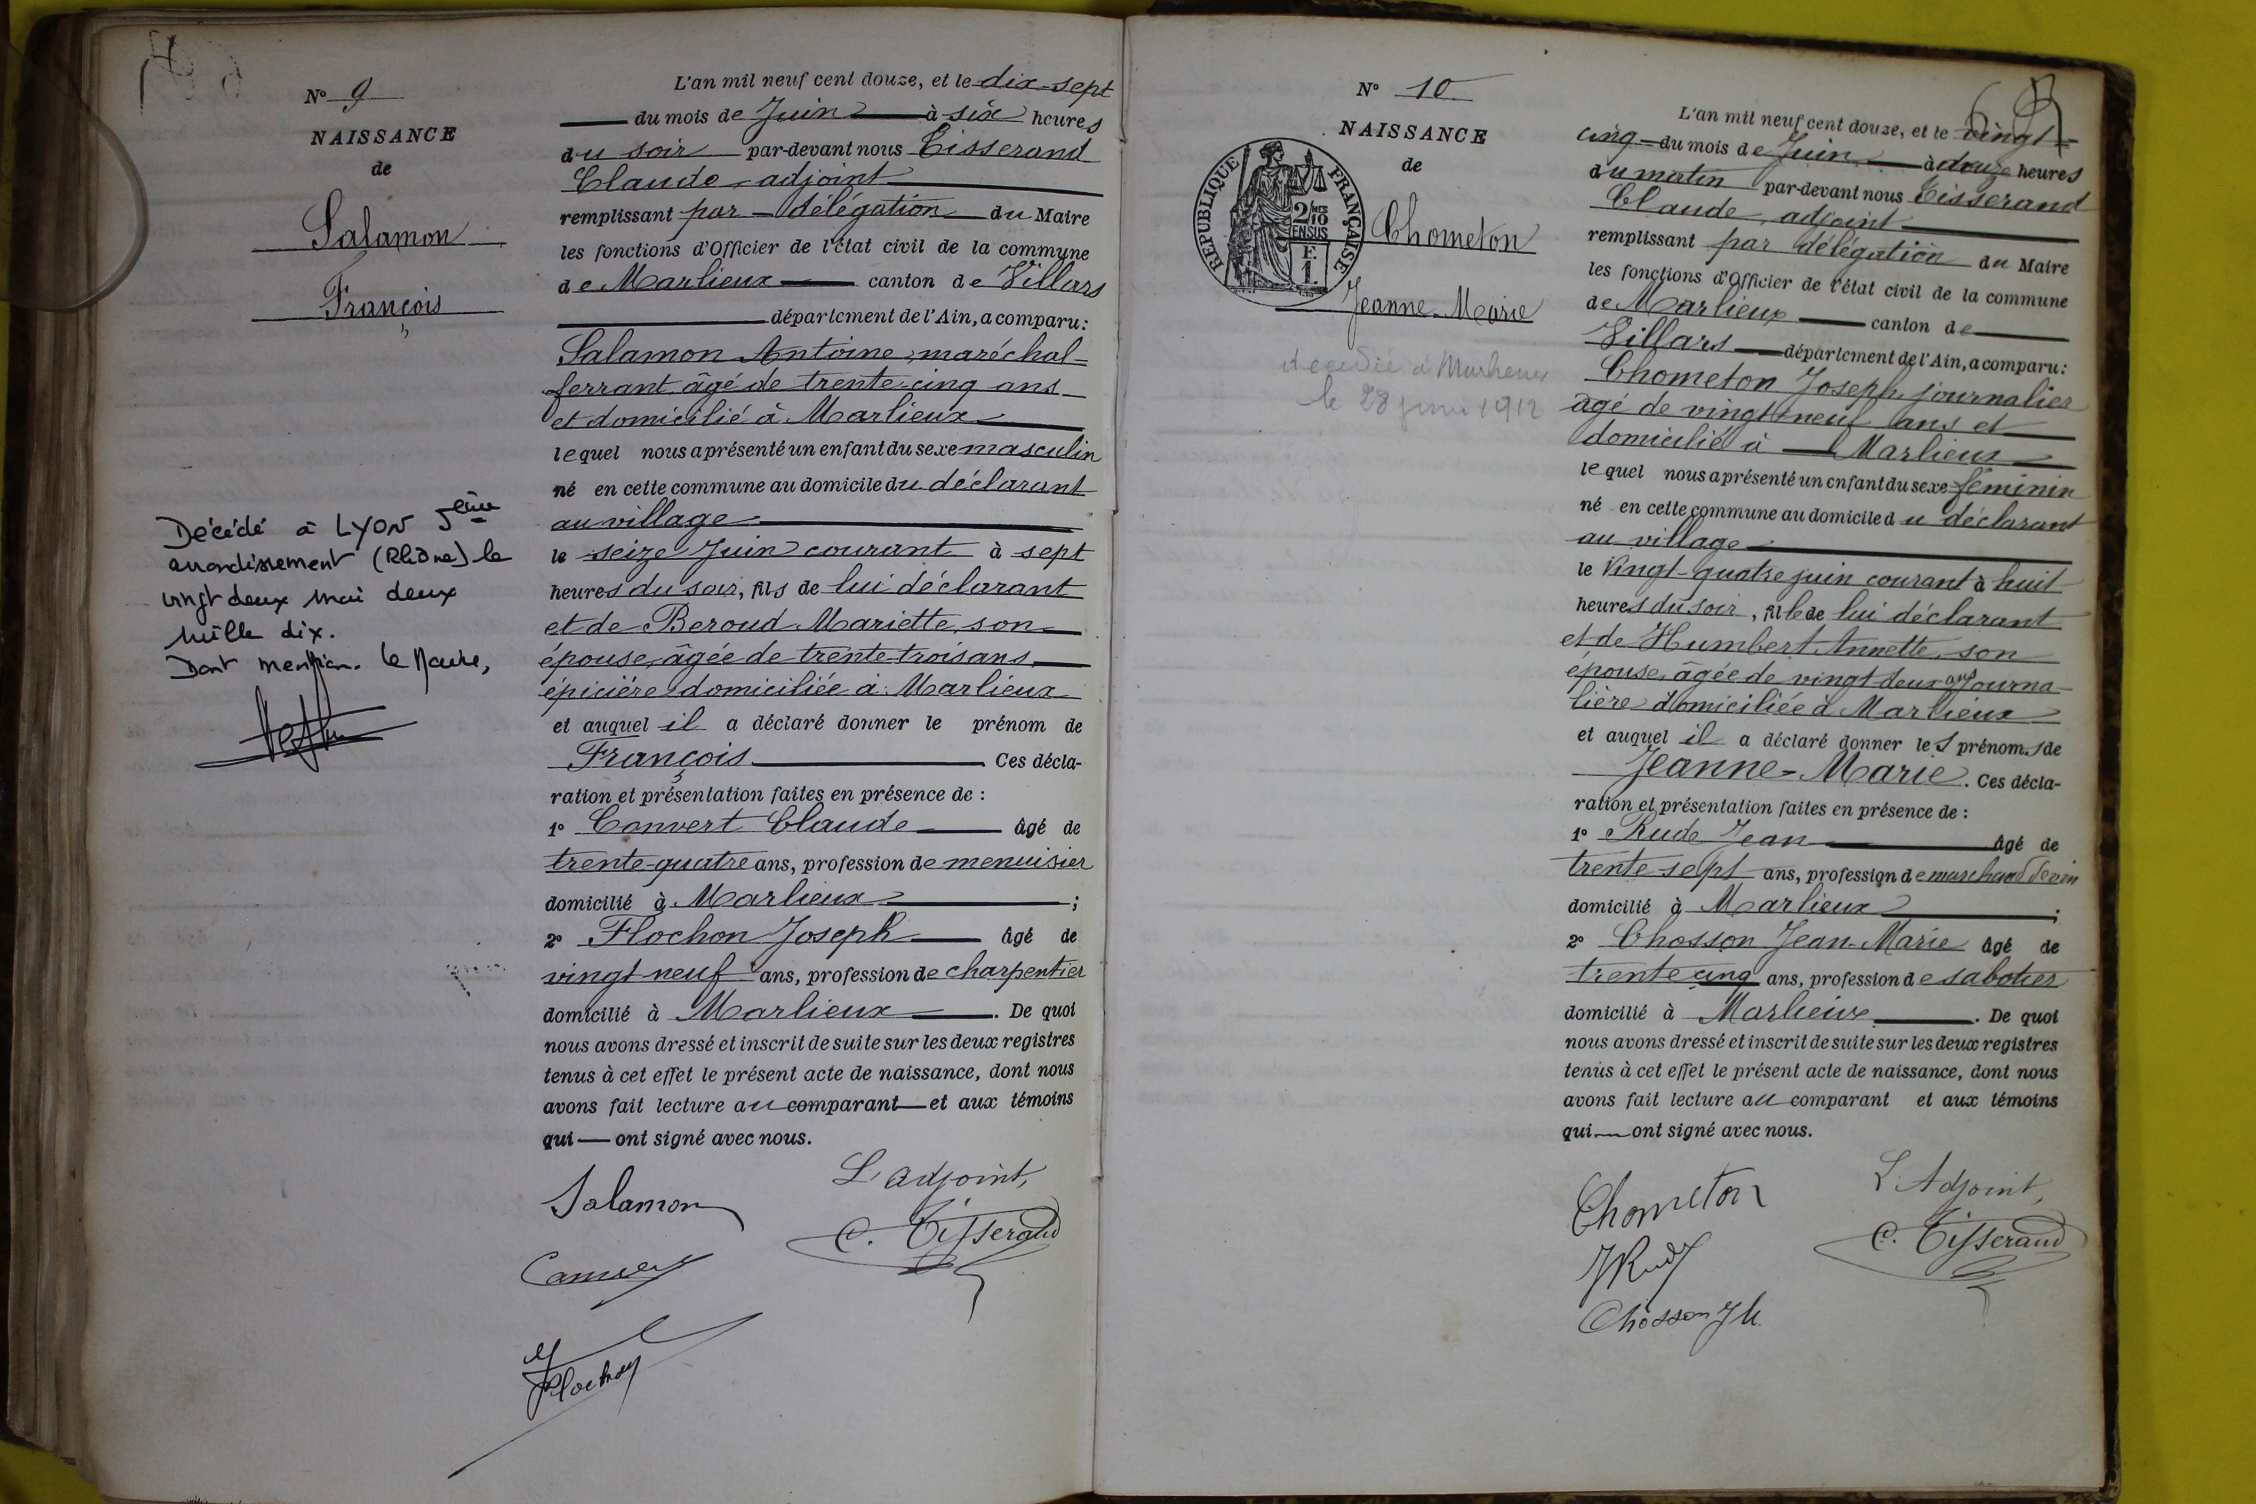 N° 9
NAISSANCE
de
Salamon
François
Décédé à LYON 5eme
arrondissement (Rhône) le
vingt deux mai deux
mille dix.
Dont mention. Le Maire,
L'an mil neuf cent douze, et le dix-sept
du mois de Juin à six heures
du soir par-devant nous Tisserand
Claude adjoint
remplissant par délégation du Maire
les fonctions d'Officier de l'état civil de la commune
de Marlieux canton de Villars
département de l'Ain, a comparu :
Salamon Antoine, maréchal-
ferrant, âgé de trente-cinq ans
et domicilié à Marlieux
lequel nous a présenté un enfant du sexe masculin
né en cette commune au domicile du déclarant
au village
le seize Juin courant à sept
heures du soir, fils de lui déclarant
et de Beroud Mariette, son
épouse, âgée de trente-trois ans
épicière domiciliée à Marlieux
et auquel il a déclaré donner le prénom de
François Ces décla-
ration et présentation faites en présence de :
1° Convert Claude âgé de
trente-quatre ans, profession de menuisier
domicilié à Marlieux ;
2° Flochon Joseph âgé de
vingt neuf ans, profession de charpentier
domicilié à Marlieux. De quoi
nous avons dressé et inscrit de suite sur les deux registres
tenus à cet effet le présent acte de naissance, dont nous
avons fait lecture au comparant et aux témoins
qui ont signé avec nous.
L'adjoint,
Salamon
C. Tisserand
Flochon
N° 10
NAISSANCE
de
REPUBLIQUE FRANÇAISE
2/10 EN SUS
F. 1
Chometon
Jeanne-Marie
décédée à Marlieux
le 28 juin 1912
L'an mil neuf cent douze, et le vingt-
cinq du mois de Juin à douze heures
du matin par-devant nous Tisserand
Claude, adjoint
remplissant par délégation du Maire
les fonctions d'Officier de l'état civil de la commune
de Marlieux canton de
Villars département de l'Ain, a comparu :
Chometon Joseph, journalier
âgé de vingt-neuf ans et
domicilié à Marlieux
lequel nous a présenté un enfant du sexe féminin
né en cette commune au domicile du déclarant
au village
le Vingt-quatre juin courant à huit
heures du soir, fille de lui déclarant
et de Humbert Annette, son
épouse, âgée de vingt deux ans journa-
lière domiciliée à Marlieux
et auquel il a déclaré donner les prénoms de
Jeanne-Marie. Ces décla-
ration et présentation faites en présence de :
1° Rude Jean âgé de
trente sept ans, profession de marchand de vin
domicilié à Marlieux ;
2° Chosson Jean-Marie âgé de
trente cinq ans, profession de sabotier
domicilié à Marlieux. De quoi
nous avons dressé et inscrit de suite sur les deux registres
tenus à cet effet le présent acte de naissance, dont nous
avons fait lecture au comparant et aux témoins
qui ont signé avec nous.
L'Adjoint,
Chometon
C. Tisserand
J Rude
Chosson JM